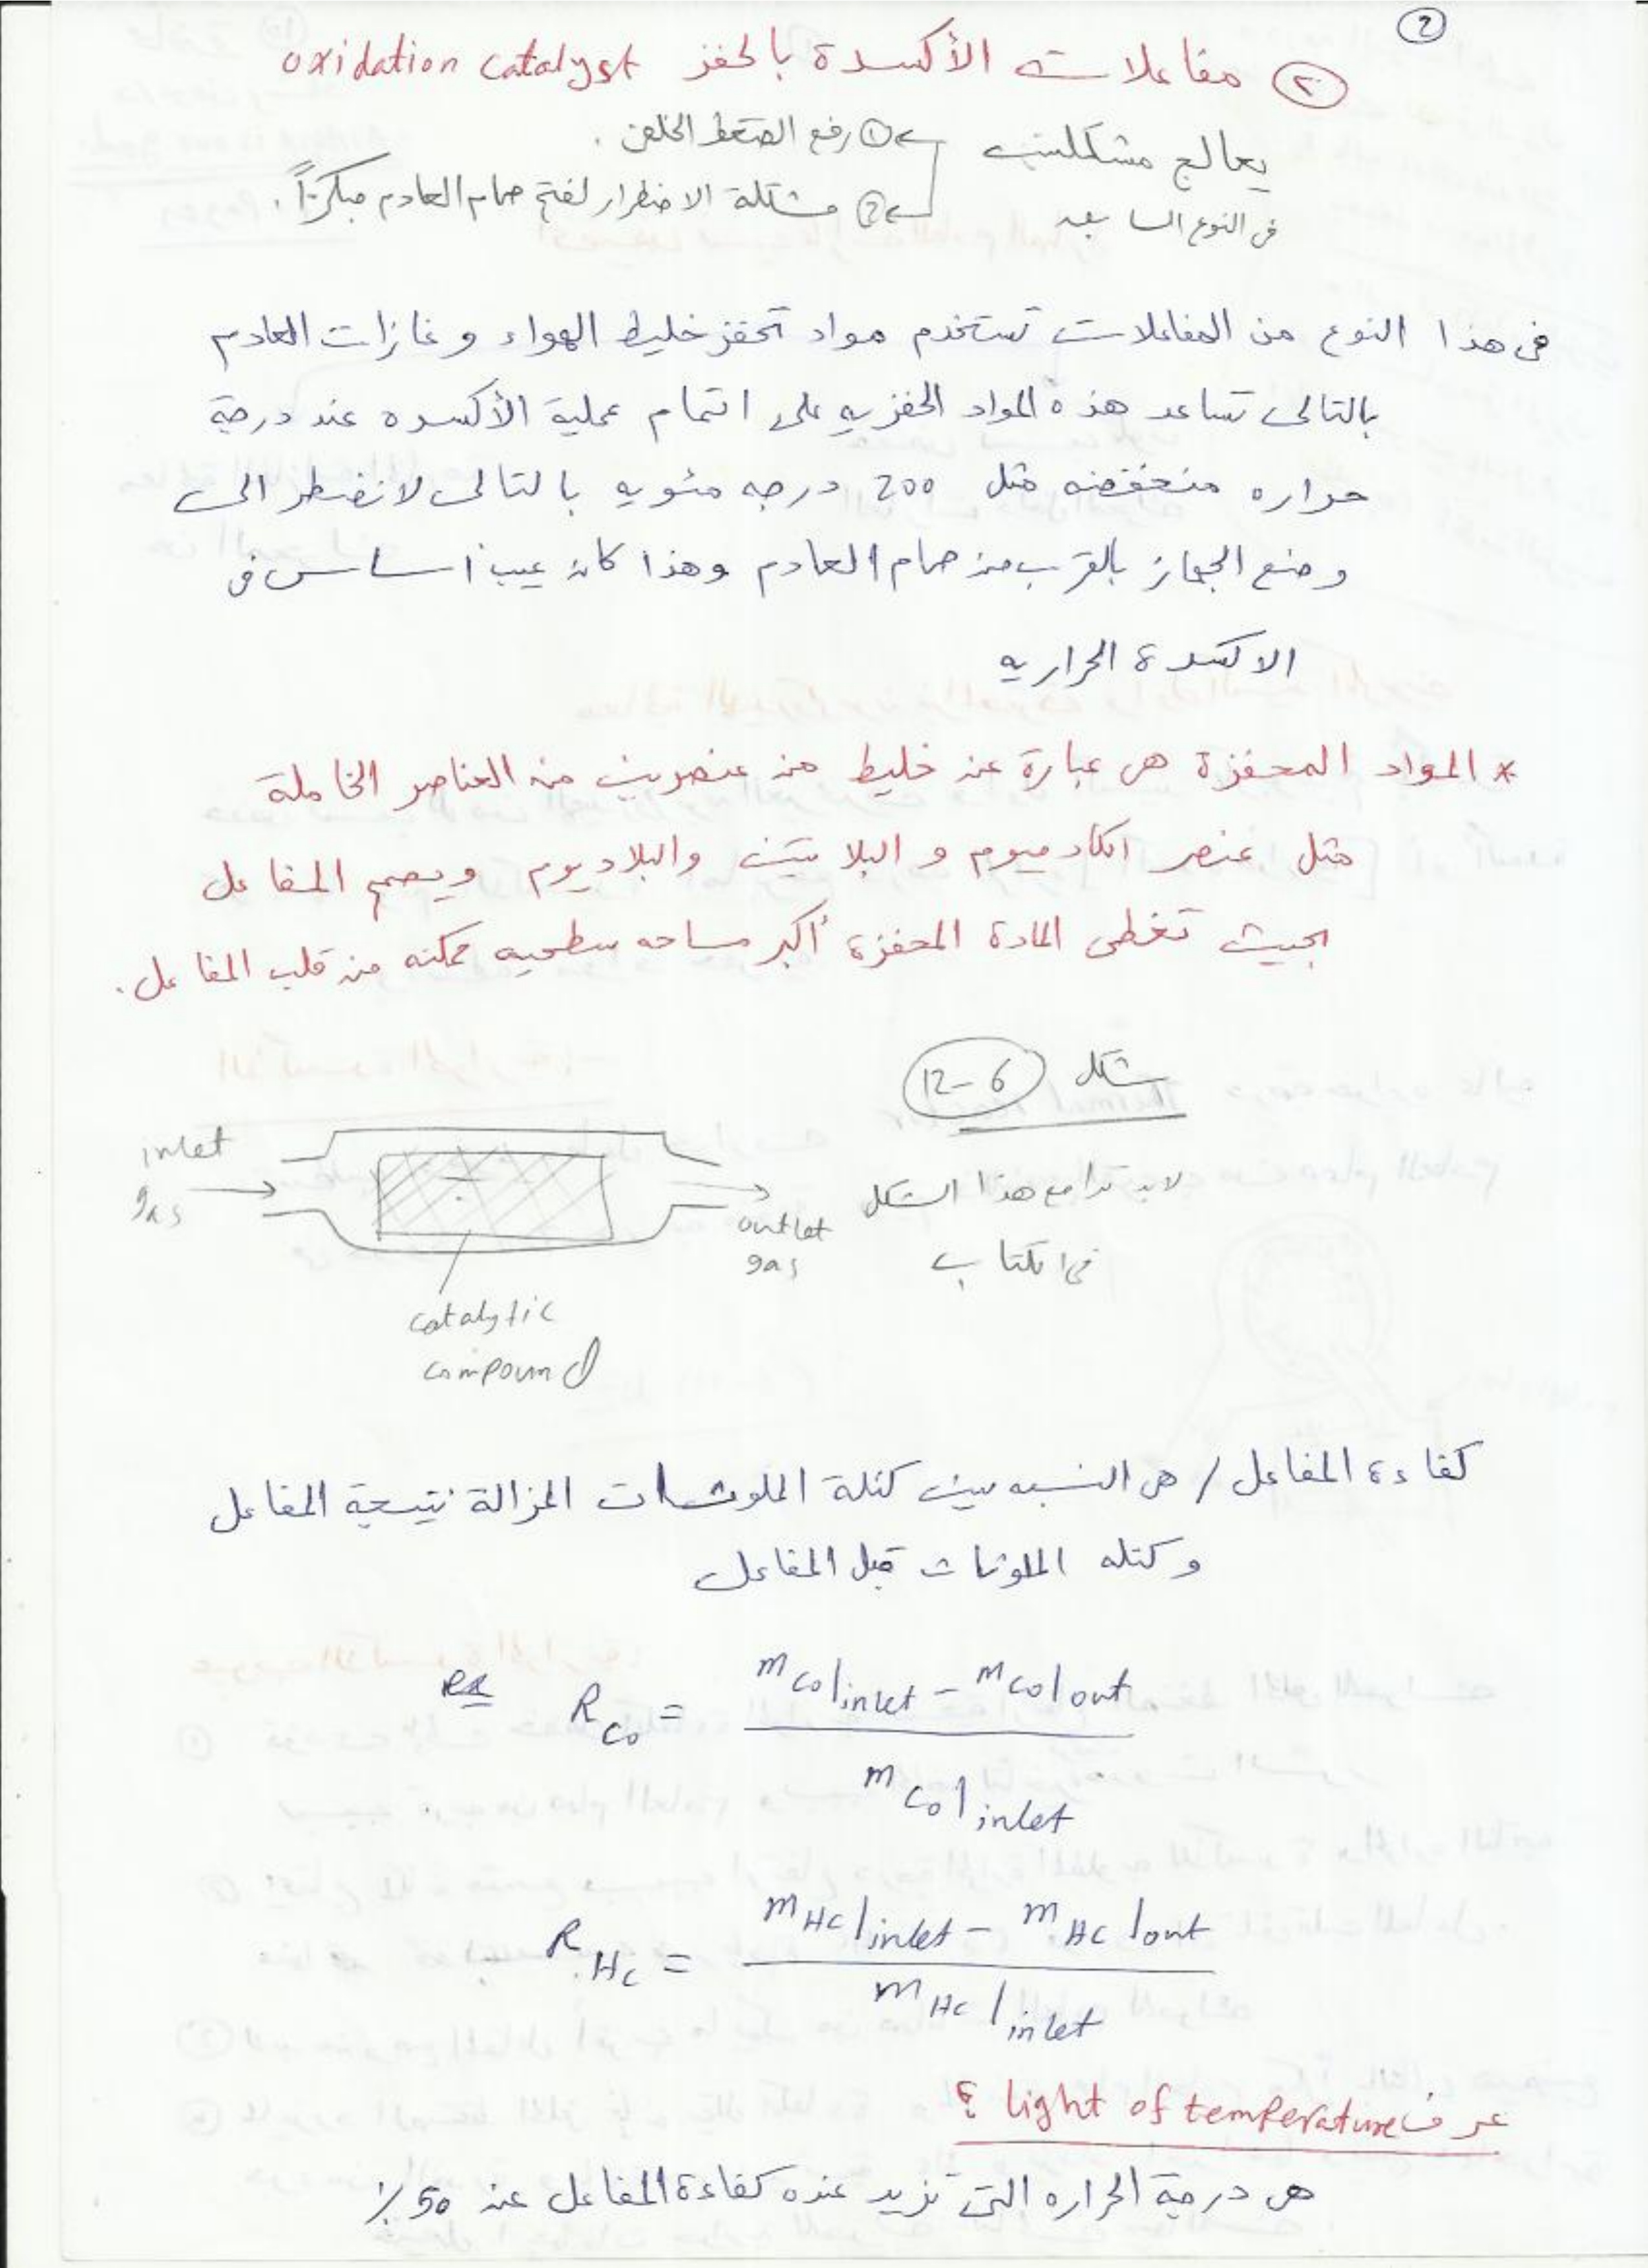 2
٢ مفاعلات الأكسدة بالحفز oxidation catalyst
يعالج مشكلتين ① رفع الضغط الخلفى .
فى النوع السابق ② مشكلة الاضطرار لفتح صمام العادم مبكراً .
فى هذا النوع من المفاعلات تستخدم مواد تحفز خليط الهواء و غازات العادم
بالتالى تساعد هذه المواد الحفزيه على اتمام عملية الأكسده عند درجة
حراره منخفضه مثل 200 درجه مئويه بالتالى لا نضطر الى
وضع الجهاز بالقرب من صمام العادم وهذا كان عيب أساسى فى
الاكسدة الحراريه
* المواد المحفزة هى عبارة عن خليط من عنصرين من العناصر الخاملة
مثل عنصر الكادميوم و البلاتين والبلاديوم ويصمم المفاعل
بحيث تغطى المادة المحفزة أكبر مساحه سطحيه ممكنه من قلب المفاعل .
شكل 12-6
لابد تراجع هذا الشكل
فى الكتاب
inlet
gas
outlet
gas
catalytic
compound
كفاءة المفاعل / هى النسبه بين كتلة الملوثات المزالة نتيجة المفاعل
وكتله الملوثات قبل المفاعل
ex R_CO = (m_CO|inlet - m_CO|out) / m_CO|inlet
R_HC = (m_HC|inlet - m_HC|out) / m_HC|inlet
عرف light of temperature ؟
هى درجة الحراره التى تزيد عنده كفاءة المفاعل عن 50 ٪